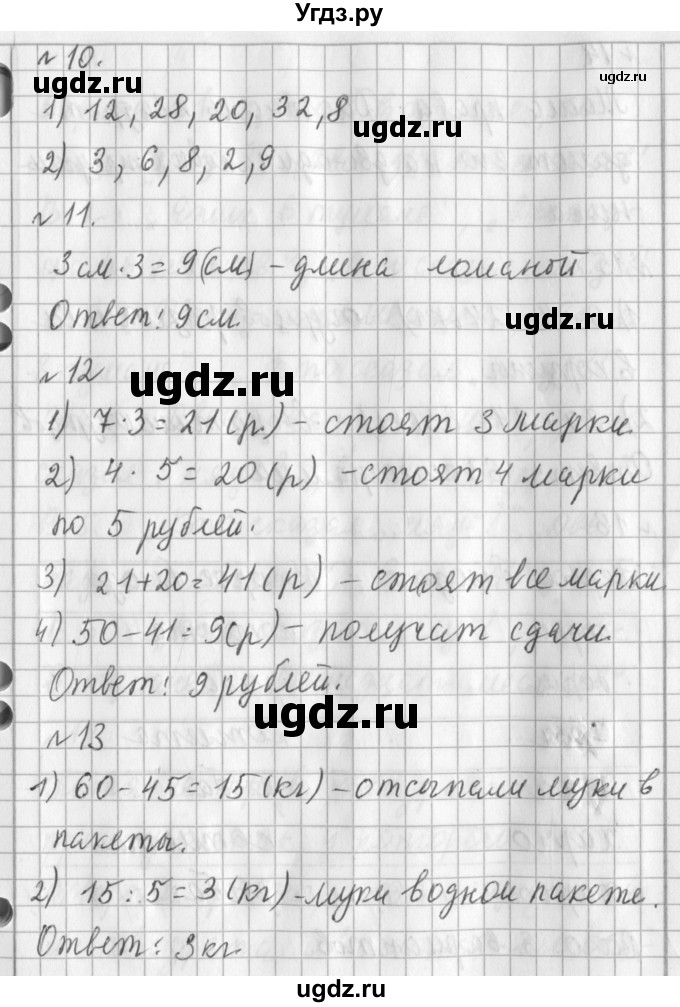 Угдз.ру
№ 10.
ugdz.ru
ugdz.ru
1) 12, 28, 20, 32, 8
ugdz.ru
2) 3, 6, 8, 2, 9
№ 11.
3 см · 3 = 9 (см) – длина ломаной
Ответ: 9 см.
ugdz.ru
№ 12
ugdz.ru
1) 7 · 3 = 21 (р.) – стоят 3 марки.
2) 4 · 5 = 20 (р) – стоят 4 марки
по 5 рублей.
3) 21 + 20 = 41 (р) – стоят все марки.
4) 50 – 41 = 9 (р) – получат сдачи.
Ответ: 9 рублей.
ugdz.ru
№ 13
1) 60 – 45 = 15 (кг) – отсыпали муки в
пакеты.
2) 15 : 5 = 3 (кг) – муки в одной пакете.
Ответ: 3 кг.
ugdz.ru